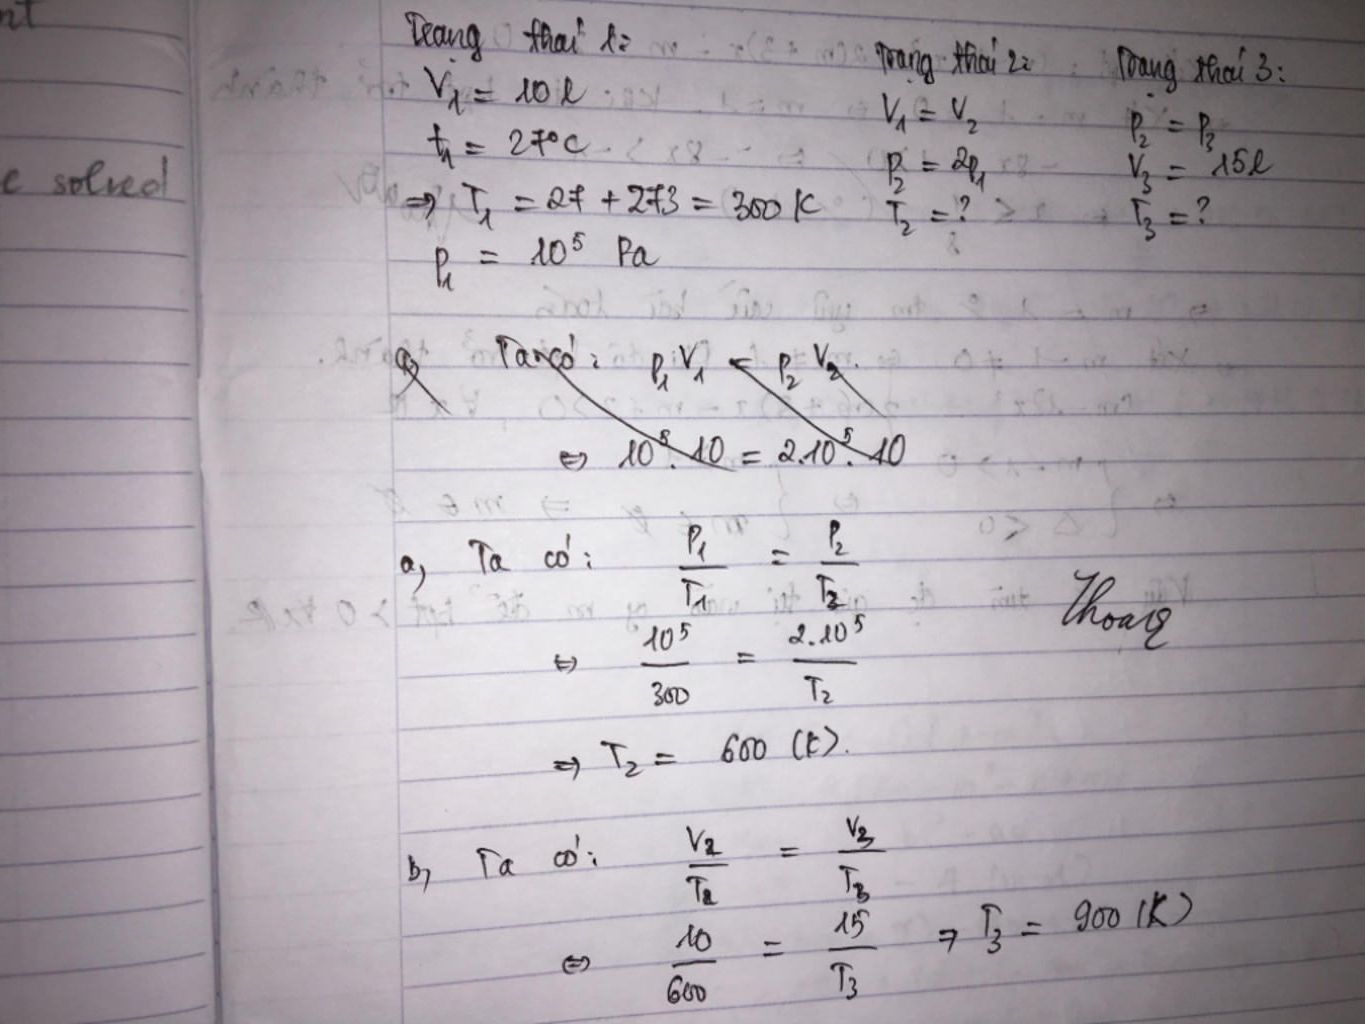 nt
e solved
Trạng thái 1:
V₁ = 10 l
t₁ = 27°C
⇒ T₁ = 27 + 273 = 300 K
p₁ = 10⁵ Pa
Trạng thái 2:
V₁ = V₂
p₂ = 2p₁
T₂ = ?
Trạng thái 3:
p₂ = p₃
V₃ = 15 l
T₃ = ?
a, Ta có: p₁V₁ = p₂V₂.
⇔ 10⁵.10 = 2.10⁵.10
a, Ta có: P₁/T₁ = P₂/T₂
⇔ 10⁵/300 = 2.10⁵/T₂
⇒ T₂ = 600 (K).
b, Ta có: V₂/T₂ = V₃/T₃
⇔ 10/600 = 15/T₃ ⇒ T₃ = 900 (K)